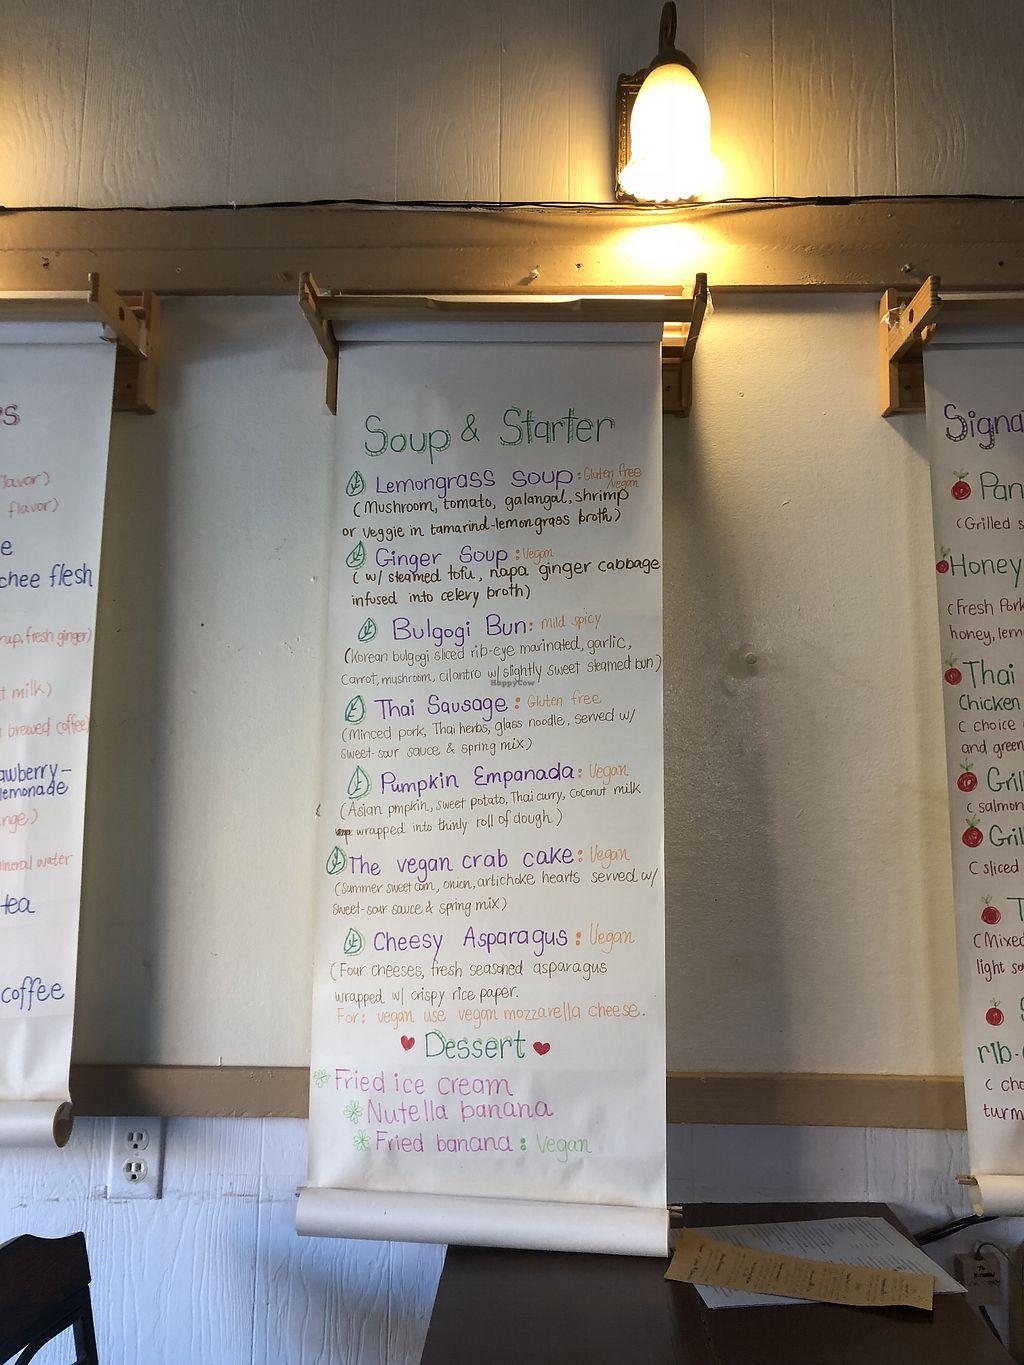 Soup & Starter
Lemongrass Soup: Gluten free
/Vegan
(Mushroom, tomato, galangal, shrimp
or Veggie in tamarind-lemongrass broth)
Ginger Soup: Vegan
( w/ steamed tofu, napa ginger cabbage
infused into celery broth)
Bulgogi Bun: mild spicy
(Korean bulgogi sliced rib-eye marinated, garlic,
Carrot, mushroom, cilantro w/ slightly sweet steamed bun)
HappyCow
Thai Sausage: Gluten free
(Minced pork, Thai herbs, glass noodle, served w/
sweet-sour sauce & spring mix)
Pumpkin Empanada: Vegan
(Asian pmpkin, sweet potato, Thai curry, Coconut milk
wrapped into thinly roll of dough.)
The vegan crab cake: Vegan
(Summer sweet corn, onion, artichoke hearts served w/
sweet-sour sauce & spring mix)
Cheesy Asparagus: Vegan
(Four cheeses, fresh seasoned asparagus
wrapped w/ crispy rice paper.
For: vegan use vegan mozzarella cheese.
Dessert
Fried ice cream
Nutella banana
Fried banana: Vegan
flavor)
flavor)
chee flesh
rup, fresh ginger)
t milk)
brewed coffee)
awberry-
lemonade
nge)
mineral water
tea
coffee
Signa
Pan
(Grilled s
Honey
(Fresh Pork
honey, lem
Thai
Chicken
( choice
and green
Gril
( salmon
Gril
( sliced
T
(Mixed
light so
rib-
( cho
turm